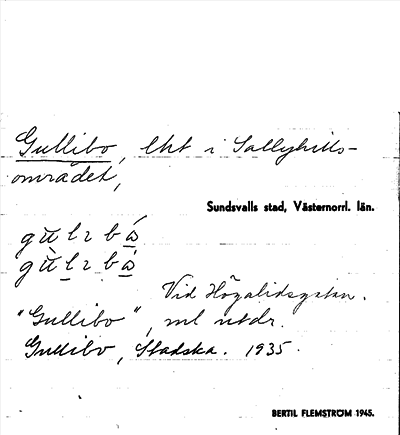 Gullibo, lht i Sallyhills-
området,
Sundsvalls stad, Västernorrl. län.
Vid Högalidsgatan.
"Gullibo", ml utdr.
Gullibo, Stadska. 1935.
BERTIL FLEMSTRÖM 1945.